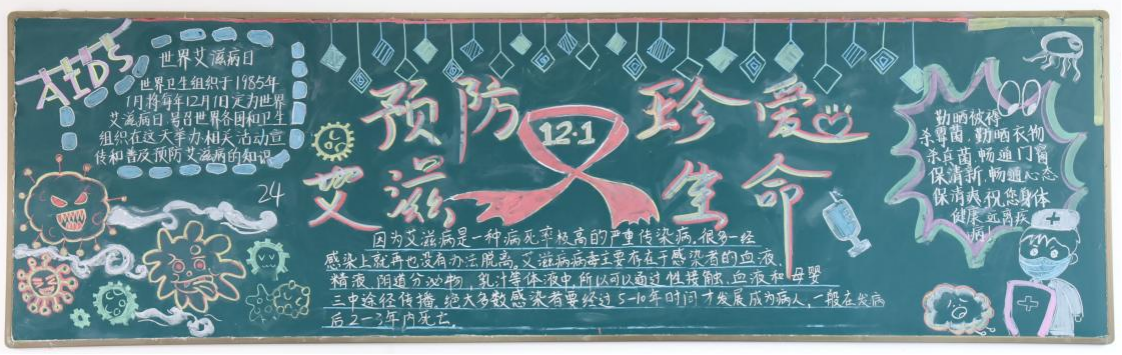 AIDS
世界艾滋病日
世界卫生组织于1985年
1月将每年12月1日定为世界
艾滋病日号召世界各国和卫生
组织在这天举办相关活动宣
传和普及预防艾滋病的知识
24
预防 珍爱
12·1
艾滋 生命
因为艾滋病是一种病死率极高的严重传染病,很多一经
感染上就再也没有办法脱离,艾滋病病毒主要存在于感染者的血液、
精液、阴道分泌物、乳汁等体液中,所以可以通过性接触、血液和母婴
三中途径传播,绝大多数感染者要经过5-10年时间才发展成为病人,一般在发病
后2-3年内死亡。
勤晒被褥
杀霉菌,勤晒衣物
杀真菌,畅通门窗
保清新,畅通心态
保清爽,祝您身体
健康远离疾
病